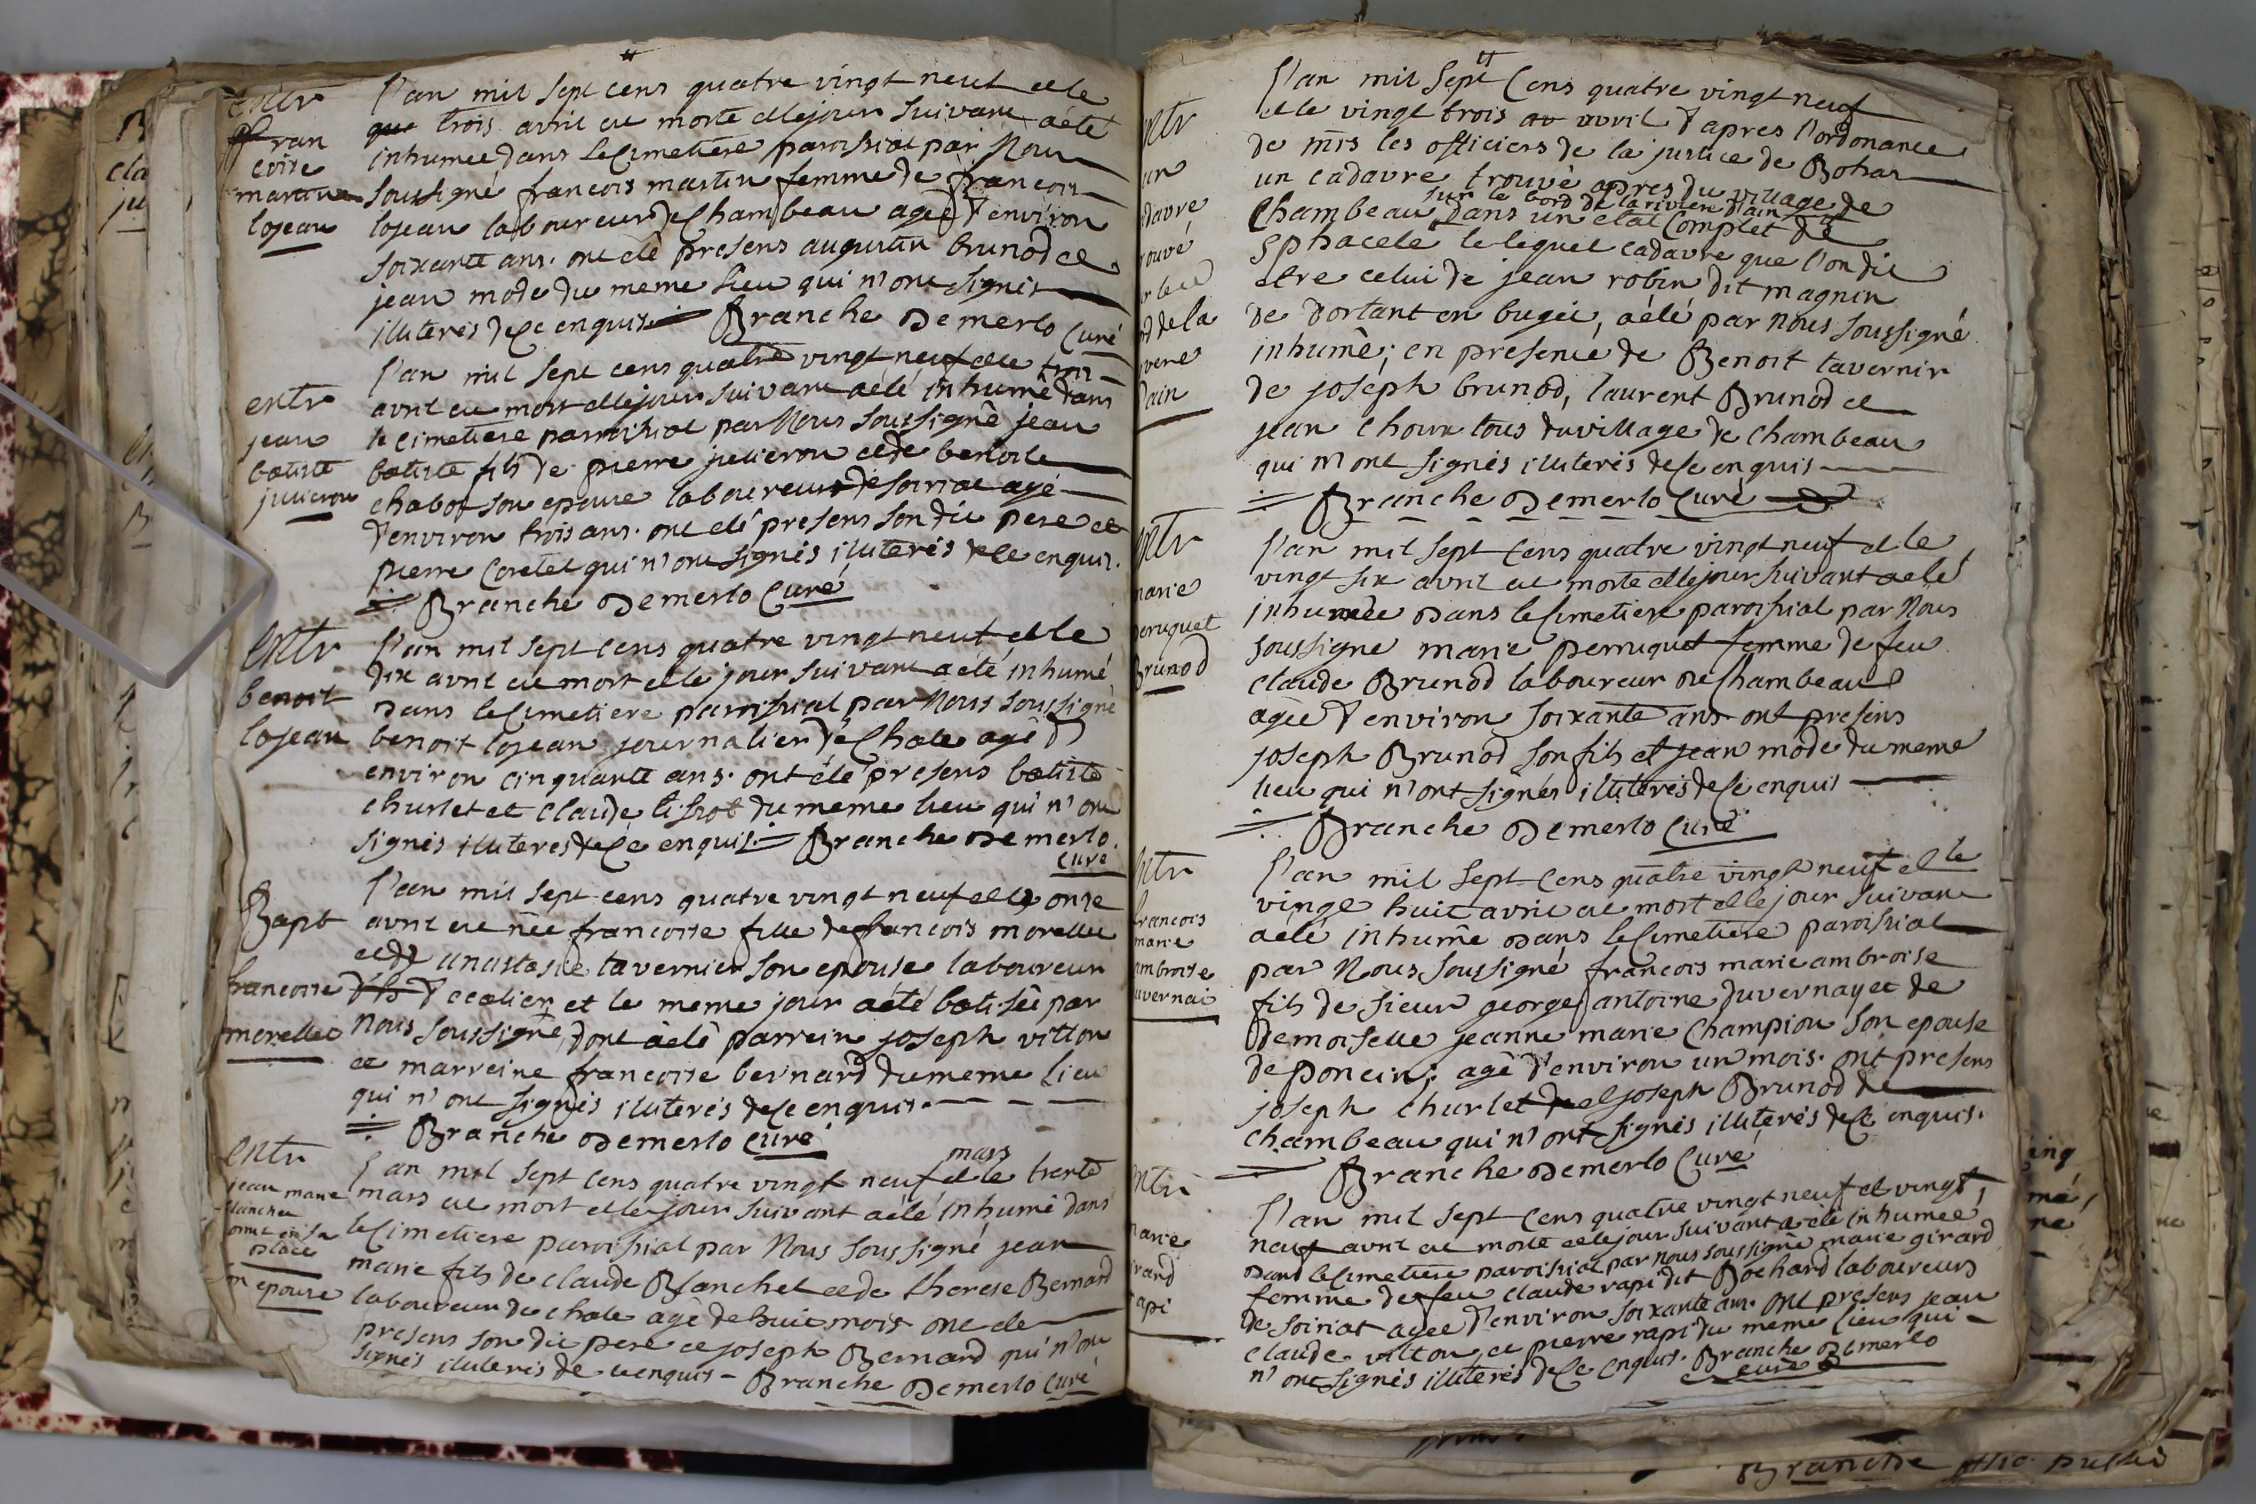 entr
fran
coise
martin
lojean
L'an mil sept cens quatre vingt neuf et le
que trois avril est morte et le jour suivant a été
inhumée dans le cimetiere paroissial par Nous
soussigné francois martin femme de francois
lojean laboureur de Chambeau agée d'environ
soixante ans. ont été presens augustin brunod et
jean mode du meme lieu qui n'ont signés
illiterés de ce enquis. Branche Demerlo Curé
entr
jean
batiste
juveneron
L'an mil sept cens quatre vingt neuf et le trois
avril est mort et le jour suivant a été inhumé dans
le cimetiere paroissial par Nous soussigné jean
batiste fils de pierre et de benoite
chabot son epouse laboureur de soiriat agé
d'environ trois ans. ont été presens son dit pere et
pierre Coretet qui n'ont signés illiterés de ce enquis.
Branche Demerlo Curé
entr
benoit
lojean
L'an mil sept cens quatre vingt neuf et le
dix avril est mort et le jour suivant a été inhumé
dans le cimetiere paroissial par Nous soussigné
benoit lojean journalier de Chale agé d
environ cinquante ans. ont été presens batiste
churlet et claude du meme lieu qui n'ont
signés illiterés de ce enquis. Branche Demerlo
Curé
Bapt
francoise
morellet
L'an mil sept cens quatre vingt neuf et le onze
avril est née francoise fille de francois morellet
et de anastasie tavernier son epouse laboureur
d'ecolier et le meme jour a été batisée par
Nous soussigné, dont a été parrein joseph vitton
et marreine francoise bernard du meme lieu
qui n'ont signés illiterés de ce enquis.
Branche Demerlo Curé
entr
jean marie
blanchet
omit en sa
place
son epouse
L'an mil sept cens quatre vingt neuf et le trente
mars
mars est mort et le jour suivant a été inhumé dans
le Cimetiere paroissial par Nous soussigné jean
marie fils de claude Blanchet et de therese Bernard
laboureur de chale agé de huit mois ont été
presens son dit pere et joseph Bernard qui n'ont
signés illiterés de ce enquis - Branche Demerlo Curé
entr
un
cadavre
trouvé
sur le
bord de la
riviere
dain
L'an mil sept Cens quatre vingt neuf
et le vingt trois av avril d'apres l'ordonance
de mrs les officiers de la justice de Bohas
un cadavre trouvé apres du village de
sur le bord de la riviere d'ain
Chambeau dans un etat complet de
sphacele le lequel cadavre que l'on dit
etre celui de jean robin dit magnin
de dortant en bugei, a été par Nous soussigné
inhumé; en presence de Benoit tavernir
de joseph brunod, laurent Brunod et
jean Choux tous du village de Chambeau
qui n'ont signés illiterés de ce enquis
Branche Demerlo Curé
entr
marie
perruquet
Brunod
L'an mil sept Cens quatre vingt neuf et le
vingt six avril est morte et le jour suivant a été
inhumée dans le Cimetiere paroissial par Nous
soussigné marie perruquet femme de feu
claude Brunod laboureur de Chambeau
agée d'environ soixante ans. ont presens
joseph Brunod son fils et jean mode du meme
lieu qui n'ont signés illiterés de ce enquis
Branche Demerlo Curé
entr
francois
marie
ambroise
duvernai
L'an mil sept Cens quatre vingt neuf et le
vingt huit avril est mort et le jour suivant
a été inhumé dans le Cimetiere paroissial
par Nous soussigné francois marie ambroise
fils de sieur george antoine duvernay et de
demoiselle jeanne marie Champion son epouse
de poncin; agé d'environ un mois. ont presens
joseph Churlet de et joseph Brunod de
chambeau qui n'ont signés illiterés de ce enquis.
Branche Demerlo Curé
entr
marie
girard
rapi
L'an mil sept Cens quatre vingt neuf et vingt
neuf avril est morte et le jour suivant a été inhumée
dans le Cimetiere paroissial par nous soussigné marie girard
femme de feu claude rapi dit Bochard laboureurs
de soiriat agée d'environ soixante ans. ont presens jean
claude vitton et pierre rapi du meme lieu qui
n'ont signés illiterés de ce enquis. Branche Demerlo
curé
Branche